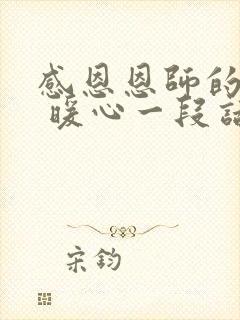 感恩恩師的
暖心一段話
宋鈞